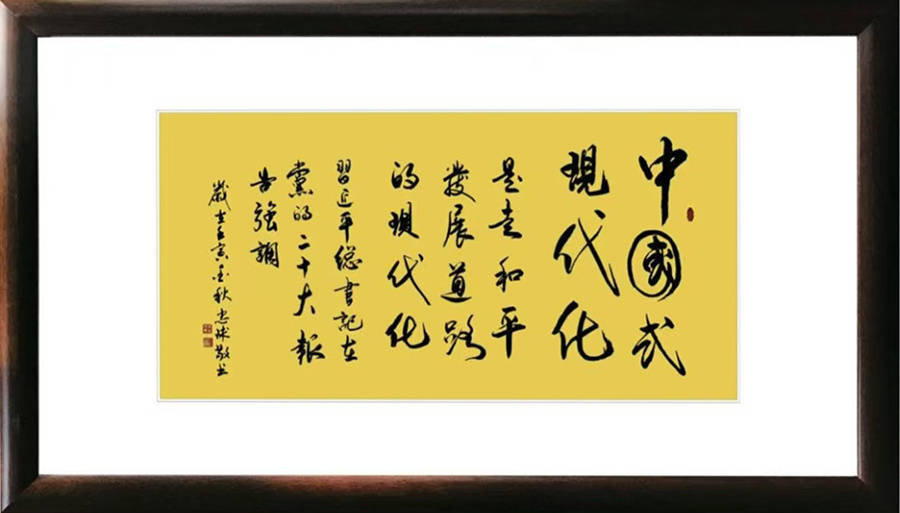 中國式
現代化
是走和平
發展道路
的現代化
習近平總書記在
黨的二十大報
告强調
歲在壬寅金秋忠林敬书